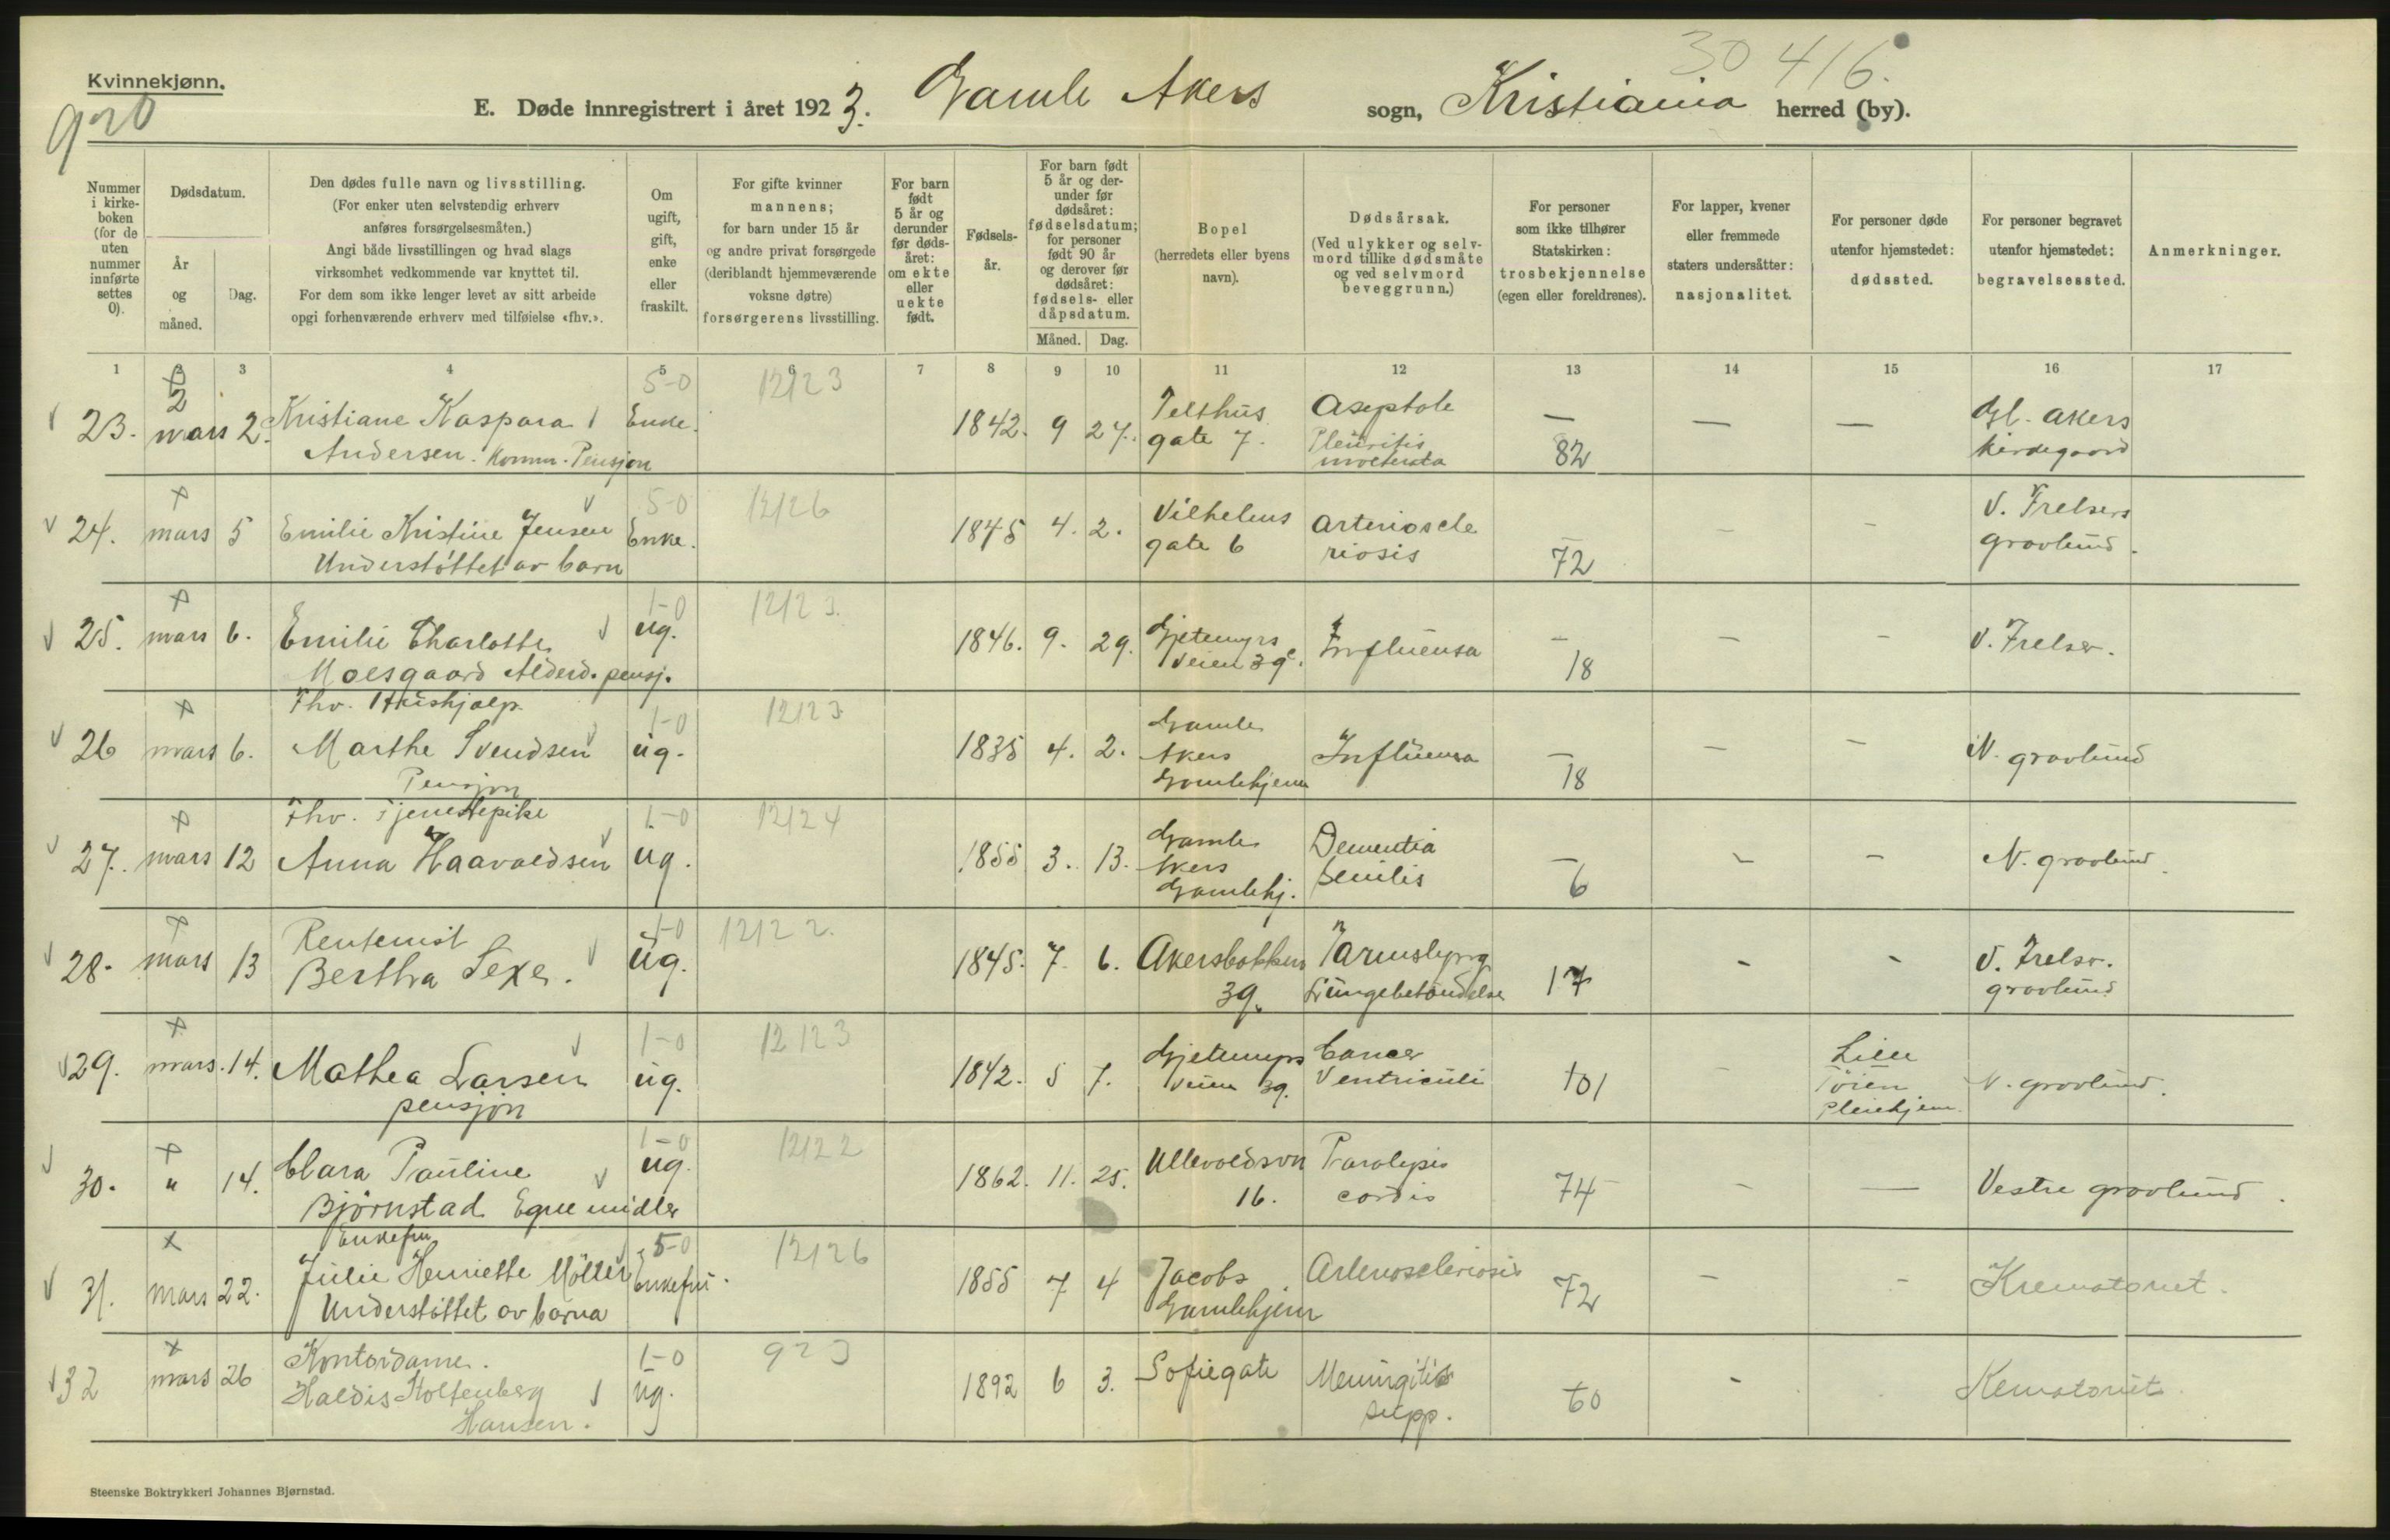 Kvinnekjønn.
920
30 416.
E. Døde innregistrert i året 1923. Gamle Akers sogn, Kristiania herred (by).
Nummer i kirkeboken (for de uten nummer innførte settes 0).
Dødsdatum.
År og måned.
Dag.
Den dødes fulle navn og livsstilling.
(For enker uten selvstendig erhverv
anføres forsørgelsesmåten.)
Angi både livsstillingen og hvad slags
virksomhet vedkommende var knyttet til.
For dem som ikke lenger levet av sitt arbeide
opgi forhenværende erhverv med tilføielse «fhv.».
Om ugift, gift, enke eller fraskilt.
For gifte kvinner
mannens;
for barn under 15 år
og andre privat forsørgede
(deriblandt hjemmeværende
voksne døtre)
forsørgerens livsstilling.
For barn født 5 år og derunder før dødsåret: om ekte eller uekte født.
Fødselsår.
For barn født 5 år og derunder før dødsåret: fødselsdatum; for personer født 90 år og derover før dødsåret: fødsels- eller dåpsdatum.
Måned. Dag.
Bopel
(herredets eller byens
navn).
Dødsårsak.
(Ved ulykker og selvmord tillike dødsmåte og ved selvmord beveggrunn.)
For personer
som ikke tilhører
Statskirken:
trosbekjennelse
(egen eller foreldrenes).
For lapper, kvener
eller fremmede
staters undersåtter:
nasjonalitet.
For personer døde
utenfor hjemstedet:
dødssted.
For personer begravet
utenfor hjemstedet:
begravelsessted.
Anmerkninger.
1 2 3 4 5 6 7 8 9 10 11 12 13 14 15 16 17
2 5-0 12123
23. mars 2. Kristiane Kaspara Enke. 1842. 9 27. Telthus Aseptole — — — Gl. Akers
Andersen. Komm. Pensjon gate 7. Pleuritis 82 kirkegaard
5-0 12126
24. mars 5 Emilie Kristine Jensen Enke. 1845 4. 2. Vilhelms Arterioscle — — — V. Frelsers
Understøttet av barn gate 6 riosis 72 gravlund.
1-0 12123.
25. mars 6. Emilie Charlotte ug. 1846. 9. 29. Gjetemyrs Influensa — — — V. Frelser.
Moesgaard Alderd. pensj. veien 39c. 18
Fhv. Hushjælp. 1-0 12123
26 mars 6. Marthe Svendsen ug. 1835 4. 2. Gamle Akers Gamlehjem Influensa — — — N. gravlund
Pensjon 18
Fhv. Tjenestepike 1-0 12124
27. mars 12 Anna Haavaldsen ug. 1855 3. 13. Gamle Akers Gamlehj. Dementia senilis — — — N. gravlund.
6
Rentenist 1-0 12122.
28. mars 13 Bertha Sexe. ug. 1845. 7. 6. Akersbakken 39. 17 - - V. Frelser.
Lungebetændelse gravlund
1-0 12123
29. mars. 14. Mathea Larsen ug. 1842. 5 7. Gjetemyrs veien 39. Cancer Ventriculi 101 - Lille Tøien Pleiehjem. N. gravlund.
pensjon
1-0 12122
30. " 14. Clara Pauline ug. 1862. 11. 25. Ullevoldsvn 16. Paralysis cordis 74 - — Vestre gravlund.
Bjørnstad Egne midler
Enkefru 5-0 12126
31. mars 22. Julie Henriette Møller Enkefru. 1855 7 4 Jacobs Gamlehjem Arterioscleriosis 72 - - Krematoriet.
Understøttet av barna
Kontordame. 1-0 923
32 mars 26 Haldis Stoltenberg ug. 1892 6 3. Sofiegate Meningitis 60 - Kematoriet.
Hansen. supp.
Steenske Boktrykkeri Johannes Bjørnstad.